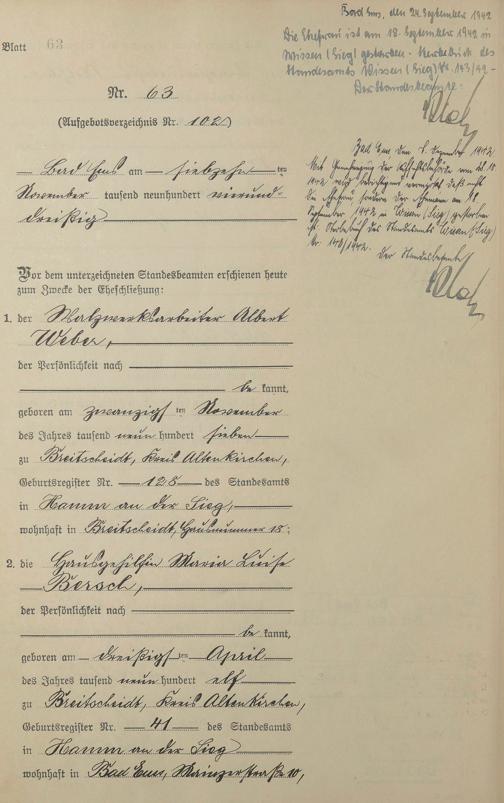 Blatt 63
Bad Ems, den 24. September 1942
Die Ehefrau ist am 18. September 1942 in
Wissen (Sieg) gestorben. Sterbebuch des
Standesamts Wissen (Sieg) Nr. 143/42.
Der Standesbeamte:
Nr. 63
(Aufgebotsverzeichnis Nr. 102)
Bad Ems am siebzehnten
November tausend neunhundert vierund-
dreißig
Bad Ems, den Dezember 1942
Mit Genehmigung der Aufsichtsbehörde vom
1942 wird berichtigend vermerkt, daß nicht
die Ehefrau sondern der Ehemann am 18.
September 1942 in Wissen (Sieg) gestorben
ist. Sterbebuch des Standesamts Wissen (Sieg)
Nr. 143/1942.
Der Standesbeamte
Vor dem unterzeichneten Standesbeamten erschienen heute
zum Zwecke der Eheschließung:
1. der Walzwerksarbeiter Albert
Weber,
der Persönlichkeit nach
be kannt,
geboren am zwanzigsten November
des Jahres tausend neun hundert sieben
zu Breitscheidt, Kreis Altenkirchen,
Geburtsregister Nr. 128 des Standesamts
in Hamm an der Sieg,
wohnhaft in Breitscheidt, Hausnummer 18;
2. die Hausgehilfin Maria Luise
Bersch,
der Persönlichkeit nach
be kannt,
geboren am dreißigsten April
des Jahres tausend neun hundert elf
zu Breitscheidt, Kreis Altenkirchen,
Geburtsregister Nr. 41 des Standesamts
in Hamm an der Sieg
wohnhaft in Bad Ems, Mainzerstraße 10,